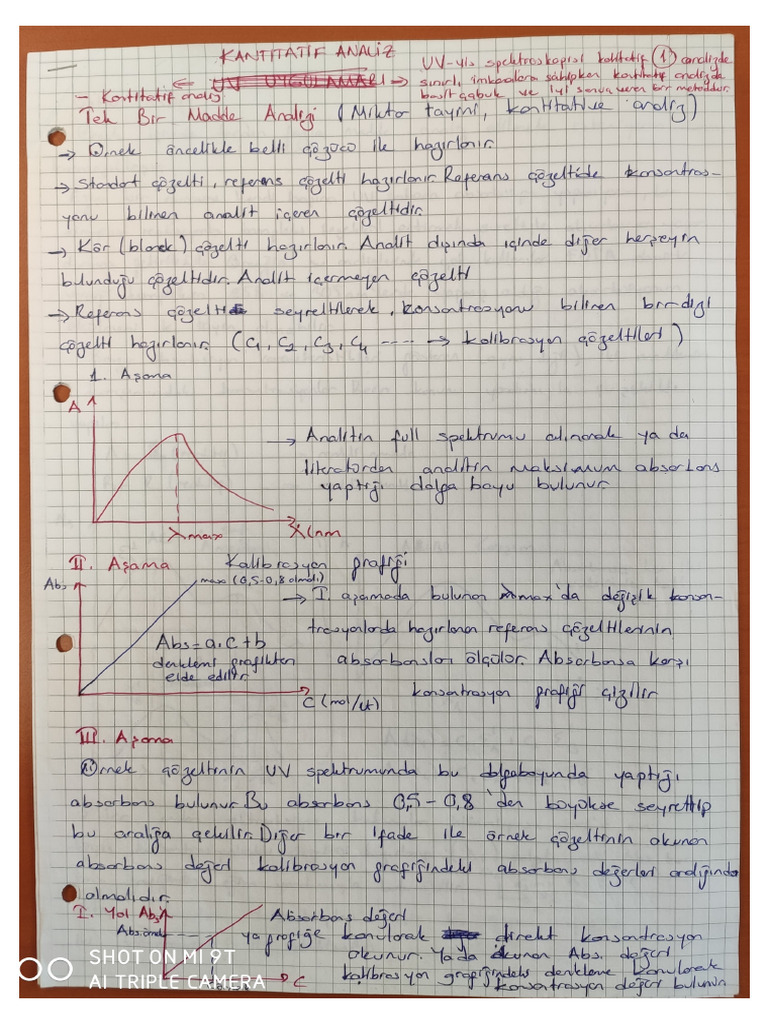 KANTITATIF ANALIZ
UV-vis spektroskopisi kalitatif (1) analizde
sınırlı imkanlara sahipken kantitatif analizde
basit çabuk ve iyi sonuç veren bir metoddur.
← UV UYGULAMARI →
- Kantitatif analiz
Tek Bir Madde Analizi (Miktar tayini, kantitative analiz)
→ Örnek öncelikle belli çözücü ile hazırlanır.
→ Standart çözelti, referans çözelti hazırlanır. Referans çözeltide konsantras-
yonu bilinen analit içeren çözeltidir.
→ Kör (blank) çözelti hazırlanır. Analit dışında içinde diğer herşeyin
bulunduğu çözeltidir. Analit içermeyen çözelti
→ Referans çözelti seyreltilerek, konsantrasyonu bilinen bir dizi
çözelti hazırlanır. (C1, C2, C3, C4 ---- → kalibrasyon çözeltileri)
1. Aşama
A
→ Analitin full spektrumu alınarak ya da
literatürden analitin maksimum absorbans
yaptığı dalga boyu bulunur.
λmax
λ(nm
II. Aşama
Kalibrasyon grafiği
Abs
max (0,5-0,8 olmalı)
→ I. aşamada bulunan λmax'da değişik konsan-
trasyonlarda hazırlanan referans çözeltilerinin
Abs = a.c + b
denklemi grafikten
elde edilir
absorbansları ölçülür. Absorbansa karşı
C (mol/lt)
konsantrasyon grafiği çizilir
III. Aşama
Örnek çözeltinin UV spektrumunda bu dalgaboyunda yaptığı
absorbans bulunur. Bu absorbans 0,5 - 0,8 'den büyükse seyreltip
bu aralığa çekilir. Diğer bir ifade ile örnek çözeltinin okunan
absorbans değeri kalibrasyon grafiğindeki absorbans değerleri aralığında
olmalıdır.
I. Yol Abs
Absorbans değeri
ya grafiğe konularak direkt konsantrasyon
okunur. Ya da okunan Abs. değeri
C
kalibrasyon grafiğindeki denkleme konularak
konsantrasyon değeri bulunur.
SHOT ON MI 9T
AI TRIPLE CAMERA